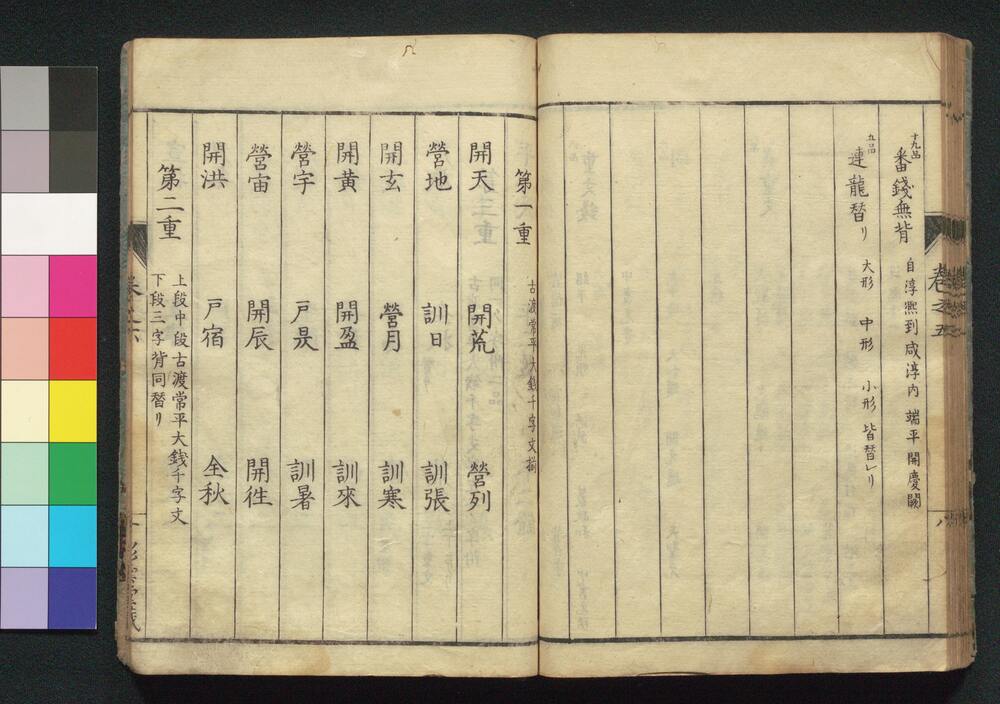 十九品
番錢無背 自淳熙到咸淳内 端平 開慶闕
五品
連龍替リ 大形 中形 小形 皆替レリ
卷之五
八
第一重 古渡常平大錢千字文揃
開天 開荒 營列
營地 訓日 訓張
開玄 營月 訓寒
開黄 開盈 訓來
營宇 戸昃 訓暑
營宙 開辰 開徃
開洪 戸宿 全秋
第二重 上段中段古渡常平大錢千字文
下段三字背同替リ
卷之六